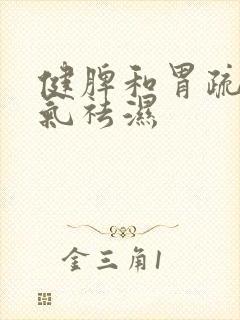 健脾和胃疏
氣祛濕
金三角1